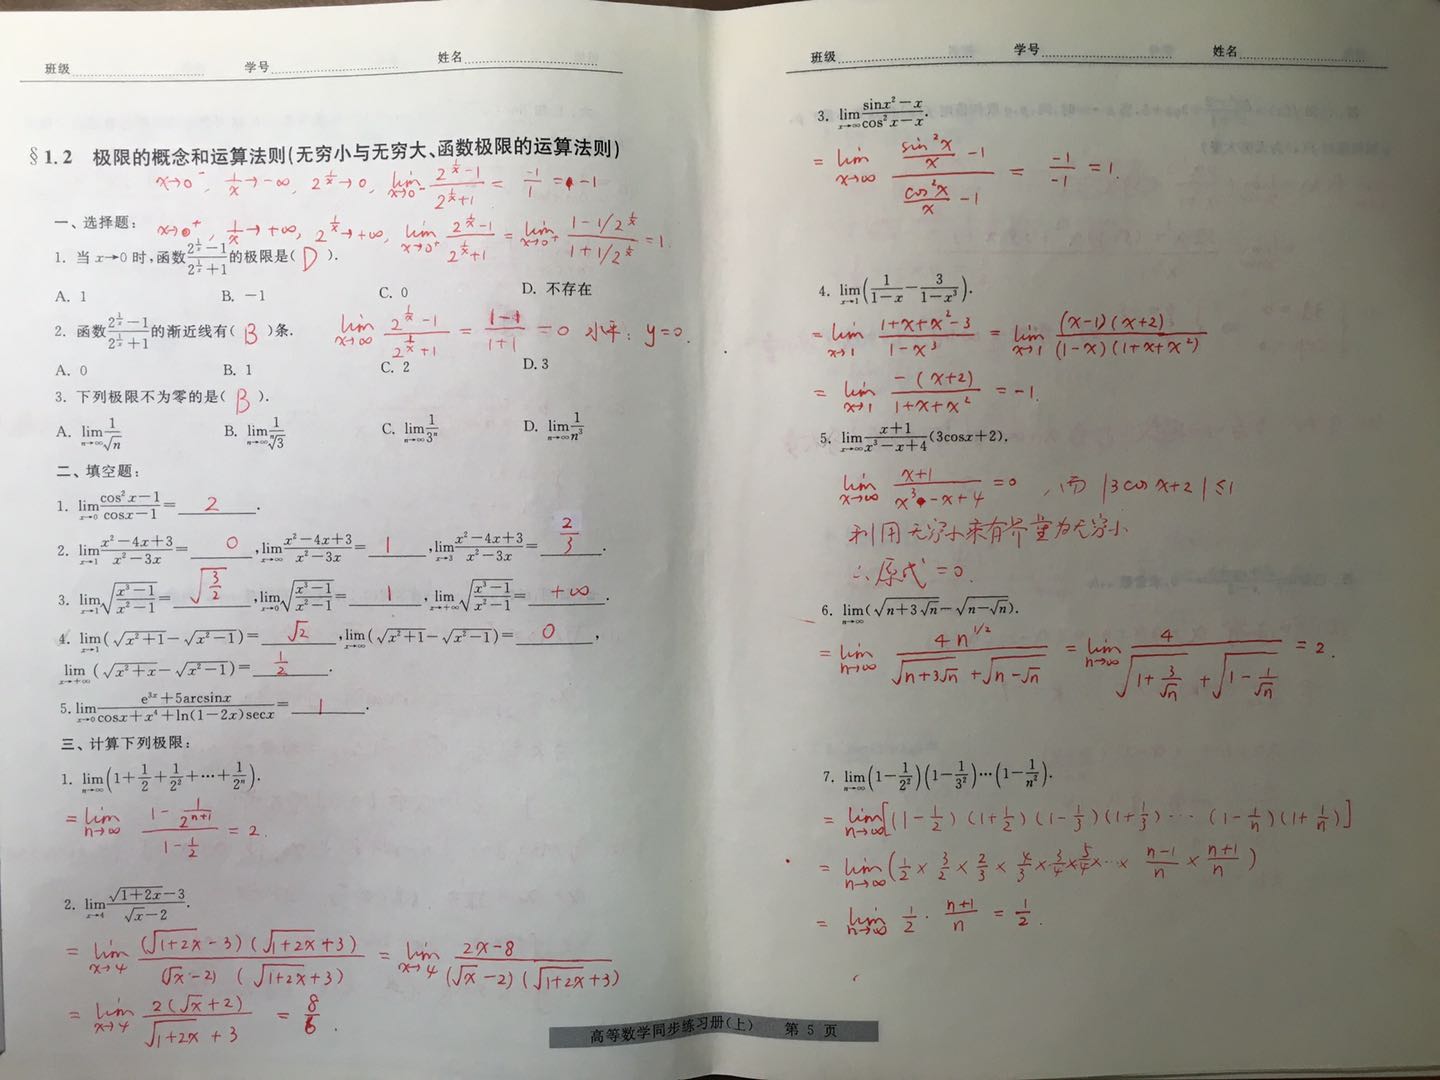 班级 学号 姓名
§1.2 极限的概念和运算法则(无穷小与无穷大、函数极限的运算法则)
x→0⁻, 1/x→-∞, 2^(1/x)→0, lim_{x→0⁻} (2^(1/x)-1)/(2^(1/x)+1) = -1/1 = -1
一、选择题:
x→0⁺, 1/x→+∞, 2^(1/x)→+∞, lim_{x→0⁺} (2^(1/x)-1)/(2^(1/x)+1) = lim_{x→0⁺} (1-1/2^(1/x))/(1+1/2^(1/x)) = 1.
1. 当 x→0 时,函数(2^(1/x)-1)/(2^(1/x)+1)的极限是( D ).
A. 1 B. -1 C. 0 D. 不存在
2. 函数(2^(1/x)-1)/(2^(1/x)+1)的渐近线有( B )条. lim_{x→∞} (2^(1/x)-1)/(2^(1/x)+1) = (1-1)/(1+1) = 0 水平: y=0.
A. 0 B. 1 C. 2 D. 3
3. 下列极限不为零的是( B ).
A. lim_{n→∞} 1/√n B. lim_{n→∞} 1/ⁿ√3 C. lim_{n→∞} 1/3ⁿ D. lim_{n→∞} 1/n³
二、填空题:
1. lim_{x→0} (cos²x-1)/(cosx-1) = 2 .
2. lim_{x→1} (x²-4x+3)/(x²-3x) = 0 , lim_{x→∞} (x²-4x+3)/(x²-3x) = 1 , lim_{x→3} (x²-4x+3)/(x²-3x) = 2/3 .
3. lim_{x→1} √((x³-1)/(x²-1)) = √(3/2) , lim_{x→0} √((x³-1)/(x²-1)) = 1 , lim_{x→+∞} √((x³-1)/(x²-1)) = +∞ .
4. lim_{x→1} (√(x²+1)-√(x²-1)) = √2 , lim_{x→∞} (√(x²+1)-√(x²-1)) = 0 ,
lim_{x→+∞} (√(x²+x)-√(x²-1)) = 1/2 .
5. lim_{x→0} (e^(3x)+5arcsinx)/(cosx+x⁴+ln(1-2x)secx) = 1 .
三、计算下列极限:
1. lim_{n→∞} (1+1/2+1/2²+···+1/2ⁿ).
= lim_{n→∞} (1-1/2^(n+1))/(1-1/2) = 2.
2. lim_{x→4} (√(1+2x)-3)/(√x-2).
= lim_{x→4} (√(1+2x)-3)(√(1+2x)+3)/((√x-2)(√(1+2x)+3)) = lim_{x→4} (2x-8)/((√x-2)(√(1+2x)+3))
= lim_{x→4} 2(√x+2)/(√(1+2x)+3) = 8/6 .
班级 学号 姓名
3. lim_{x→∞} (sinx²-x)/(cos²x-x).
= lim_{x→∞} (sin²x/x-1)/(cos²x/x-1) = -1/-1 = 1.
4. lim_{x→1} (1/(1-x)-3/(1-x³)).
= lim_{x→1} (1+x+x²-3)/(1-x³) = lim_{x→1} (x-1)(x+2)/((1-x)(1+x+x²))
= lim_{x→1} -(x+2)/(1+x+x²) = -1.
5. lim_{x→∞} (x+1)/(x³-x+4)(3cosx+2).
lim_{x→∞} (x+1)/(x³-x+4) = 0 , 而 |3cosx+2| ≤1
利用无穷小乘有界量为无穷小
∴原式=0.
6. lim_{n→∞} (√(n+3√n)-√(n-√n)).
= lim_{n→∞} 4n^(1/2)/(√(n+3√n)+√(n-√n)) = lim_{n→∞} 4/(√(1+3/√n)+√(1-1/√n)) = 2.
7. lim_{n→∞} (1-1/2²)(1-1/3²)···(1-1/n²).
= lim_{n→∞} [(1-1/2)(1+1/2)(1-1/3)(1+1/3)···(1-1/n)(1+1/n)]
= lim_{n→∞} (1/2×3/2×2/3×4/3×3/4×5/4×···×(n-1)/n×(n+1)/n)
= lim_{n→∞} 1/2·(n+1)/n = 1/2.
高等数学同步练习册(上) 第 5 页